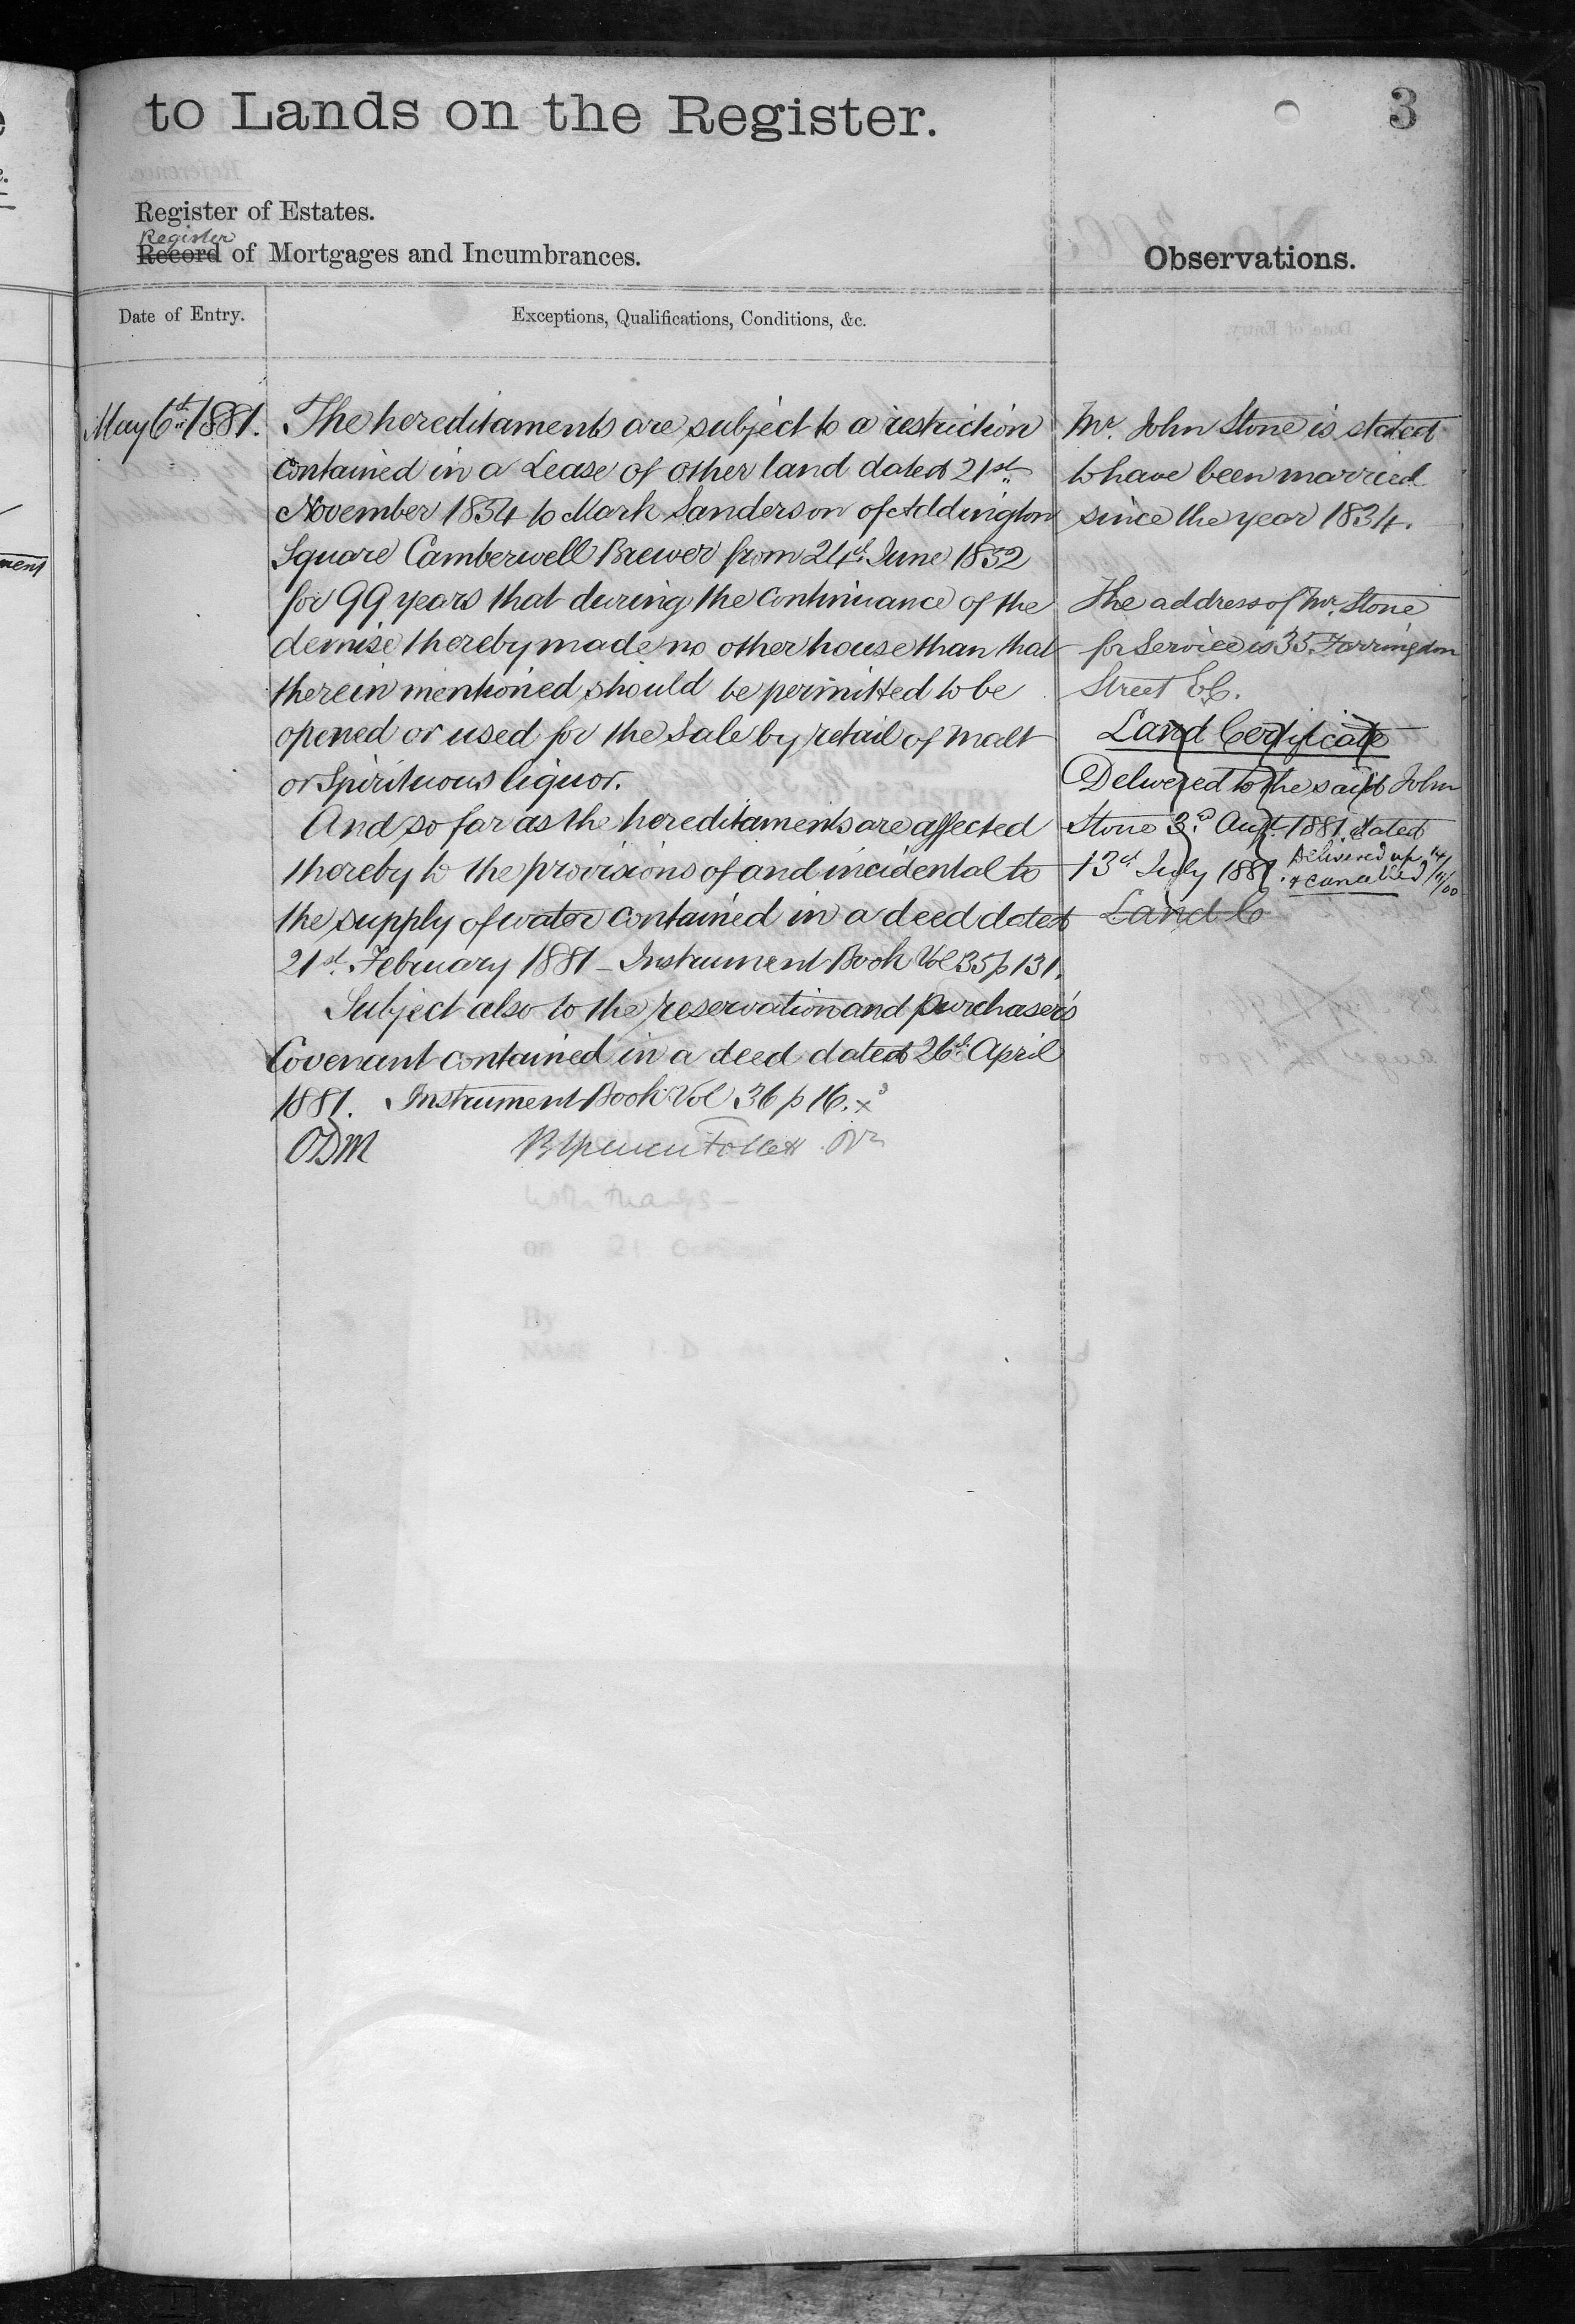 to Lands on the Register.
3
Register of Estates.
Register
Record of Mortgages and Incumbrances.
Observations.
Date of Entry.
Exceptions, Qualifications, Conditions, &c.
May 6th 1881.
The hereditaments are subject to a restriction
contained in a Lease of other land dated 21st
November 1854 to Mark Sanderson of Addington
Square Camberwell Brewer from 24th June 1852
for 99 years that during the continuance of the
demise thereby made no other house than that
therein mentioned should be permitted to be
opened or used for the Sale by retail of Malt
or Spirituous liquor.
And so far as the hereditaments are affected
thereby to the provisions of and incidental to
the supply of water contained in a deed dated
21st February 1881 – Instrument Book Vol 35 p 131.
Subject also to the reservation and purchaser's
Covenant contained in a deed dated 26th April
1881. Instrument Book Vol 36 p 16.
ODM
Mr. John Stone is stated
to have been married
since the year 1834.
The address of Mr. Stone
for Service is 35 Farringdon
Street E.C.
Land Certificate
Delivered to the said John
Stone 3rd Augt. 1881. dated
13th July 1881.
Delivered up
& cancelled
14/11/00
Land C